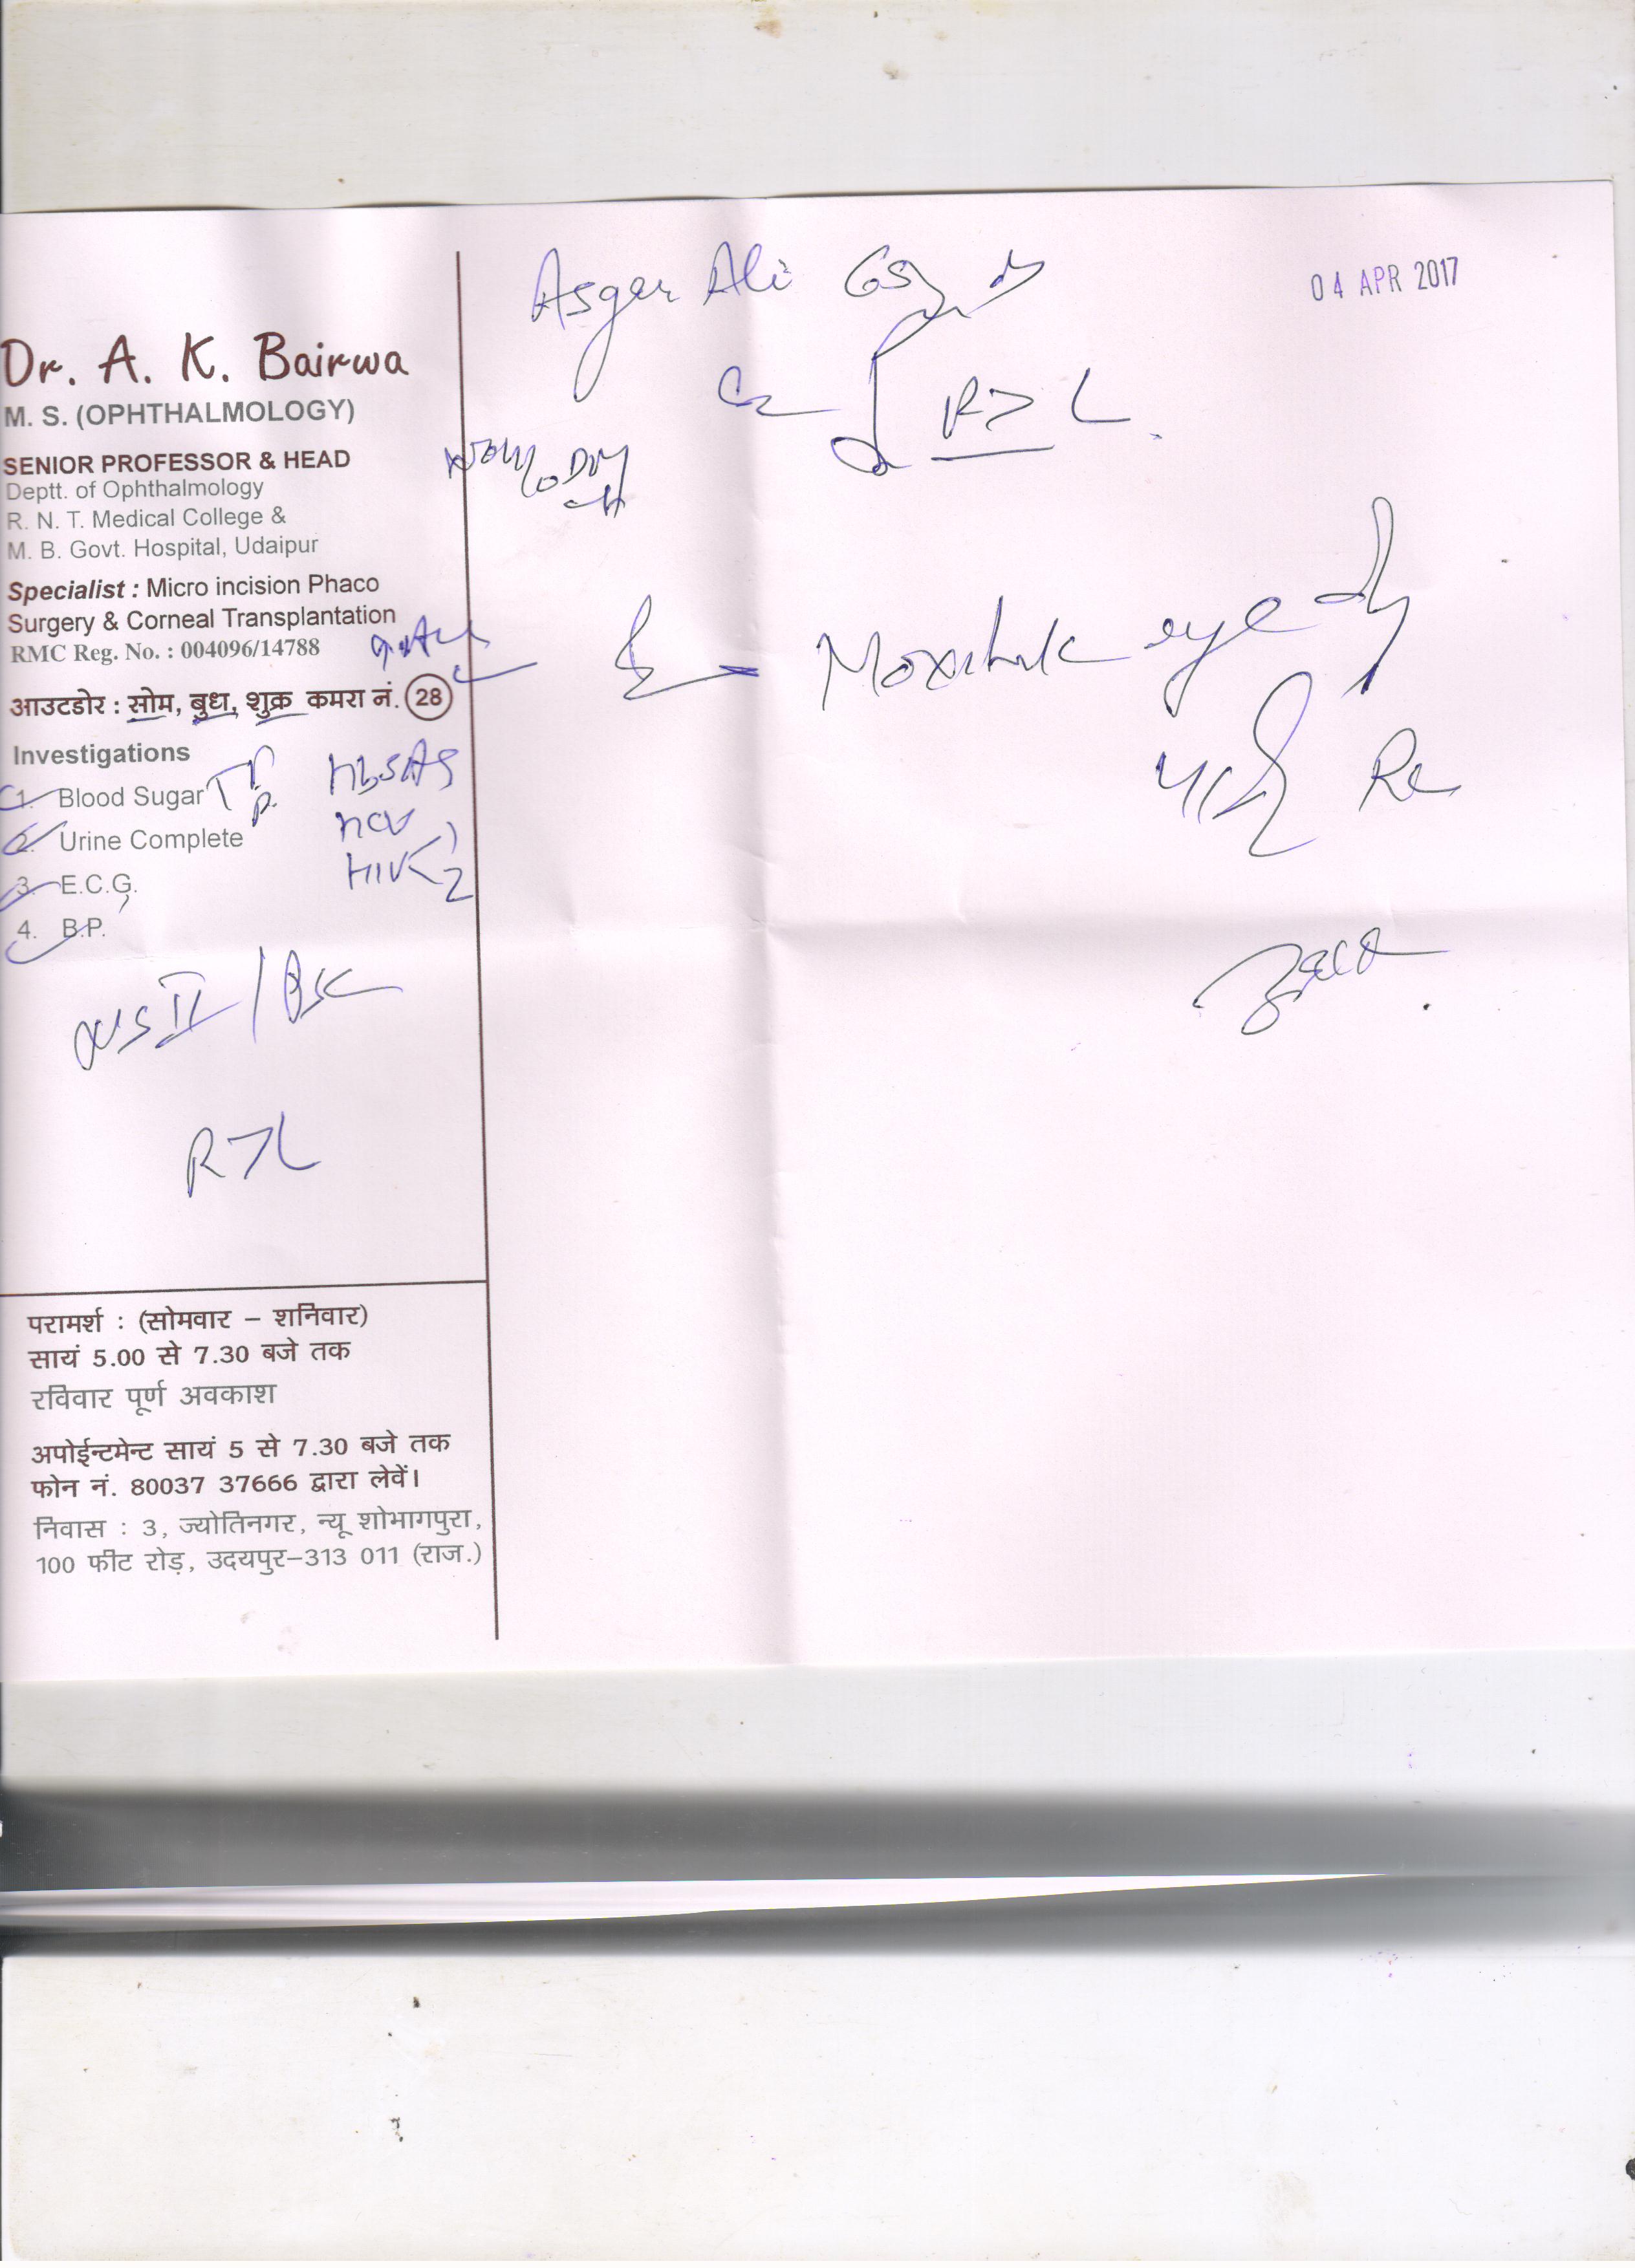 Dr. A. K. Bairwa
M. S. (OPHTHALMOLOGY)
SENIOR PROFESSOR & HEAD
Deptt. of Ophthalmology
R. N. T. Medical College &
M. B. Govt. Hospital, Udaipur
Specialist : Micro incision Phaco
Surgery & Corneal Transplantation
RMC Reg. No. : 004096/14788
आउटडोर : सोम, बुध, शुक्र कमरा नं. 28
Investigations
1. Blood Sugar
HbsAg
2. Urine Complete
HCV
3. E.C.G.
HIV 1 2
4. B.P.
NS II / PSC
R > L
परामर्श : (सोमवार – शनिवार)
सायं 5.00 से 7.30 बजे तक
रविवार पूर्ण अवकाश
अपोईन्टमेन्ट सायं 5 से 7.30 बजे तक
फोन नं. 80037 37666 द्वारा लेवें।
निवास : 3, ज्योतिनगर, न्यू शोभागपुरा,
100 फीट रोड़, उदयपुर–313 011 (राज.)
04 APR 2017
Asger Ali
R > L
eye
Re